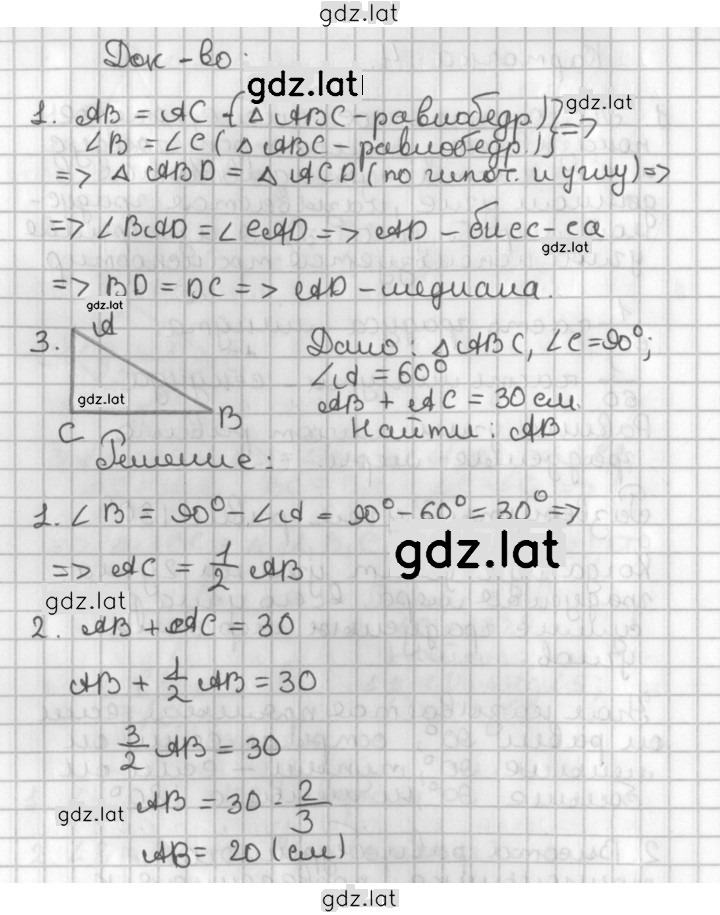 gdz.lat
Док-во:
gdz.lat
1. AB = AC - (△ABC - равнобедр.) } =>
gdz.lat
∠B = ∠C (△ABC - равнобедр.) }
=> △ABD = △ACD (по гипот. и углу) =>
=> ∠BAD = ∠CAD => AD - бисс-са
gdz.lat
=> BD = DC => AD - медиана.
gdz.lat
3. A
gdz.lat
C B
Дано: △ABC, ∠C = 90°;
∠A = 60°
AB + AC = 30 см.
Найти: AB
Решение:
1. ∠B = 90° - ∠A = 90° - 60° = 30° =>
gdz.lat
=> AC = 1/2 AB
gdz.lat
2. AB + AC = 30
AB + 1/2 AB = 30
3/2 AB = 30
gdz.lat
AB = 30 · 2/3
AB = 20 (см)
gdz.lat